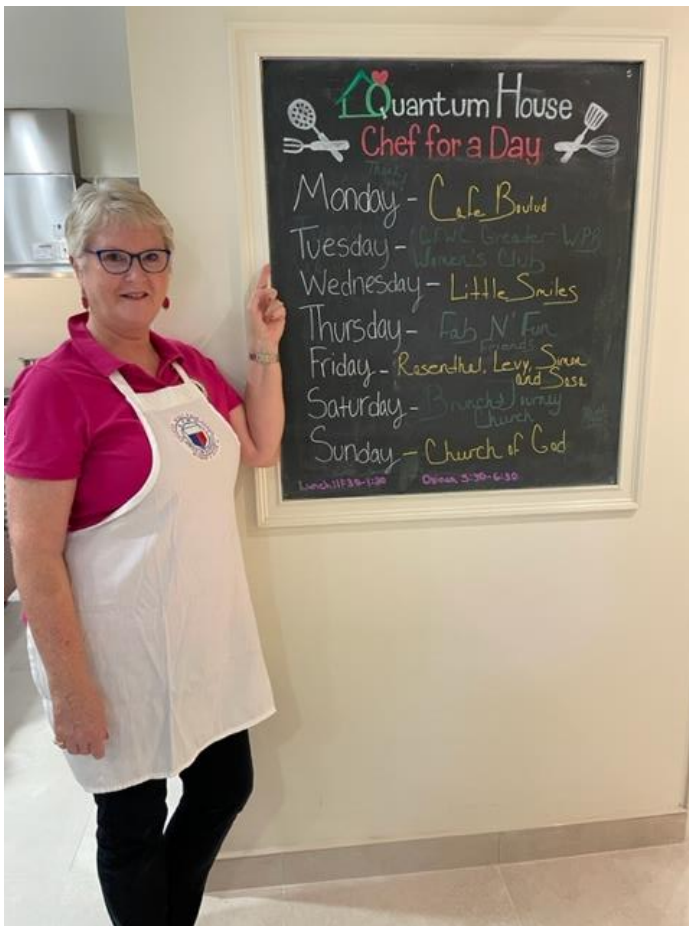 Quantum House
Chef for a Day
Monday - Cafe Boulud
Tuesday - GFWC Greater WPB
Women's Club
Wednesday - Little Smiles
Thursday - Fab N' Fun
Friends
Friday - Rosenthal, Levy, Simon
and Sosa
Saturday - Brunch Journey
Church
Sunday - Church of God
Lunch 11:30-1:30 Dinner 5:30-6:30